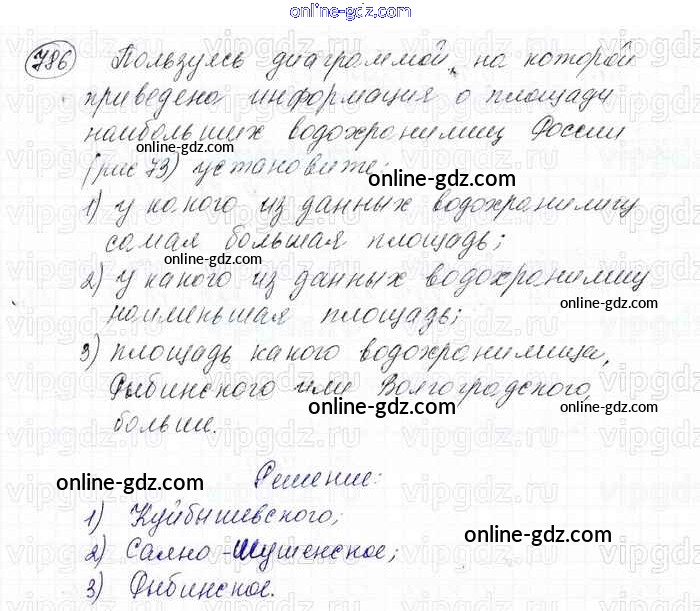 online-gdz.com
786 Пользуясь диаграммой, на которой
приведена информация о площади
наибольших водохранилищ России
(рис 73) установите:
online-gdz.com
1) у какого из данных водохранилищ
самая большая площадь;
2) у какого из данных водохранилищ
online-gdz.com
наименьшая площадь;
3) площадь какого водохранилища,
Рыбинского или Волгоградского,
online-gdz.com online-gdz.com
больше.
Решение:
online-gdz.com
1) Куйбышевского;
online-gdz.com
2) Саяно-Шушенское;
3) Рыбинское.
online-gdz.com